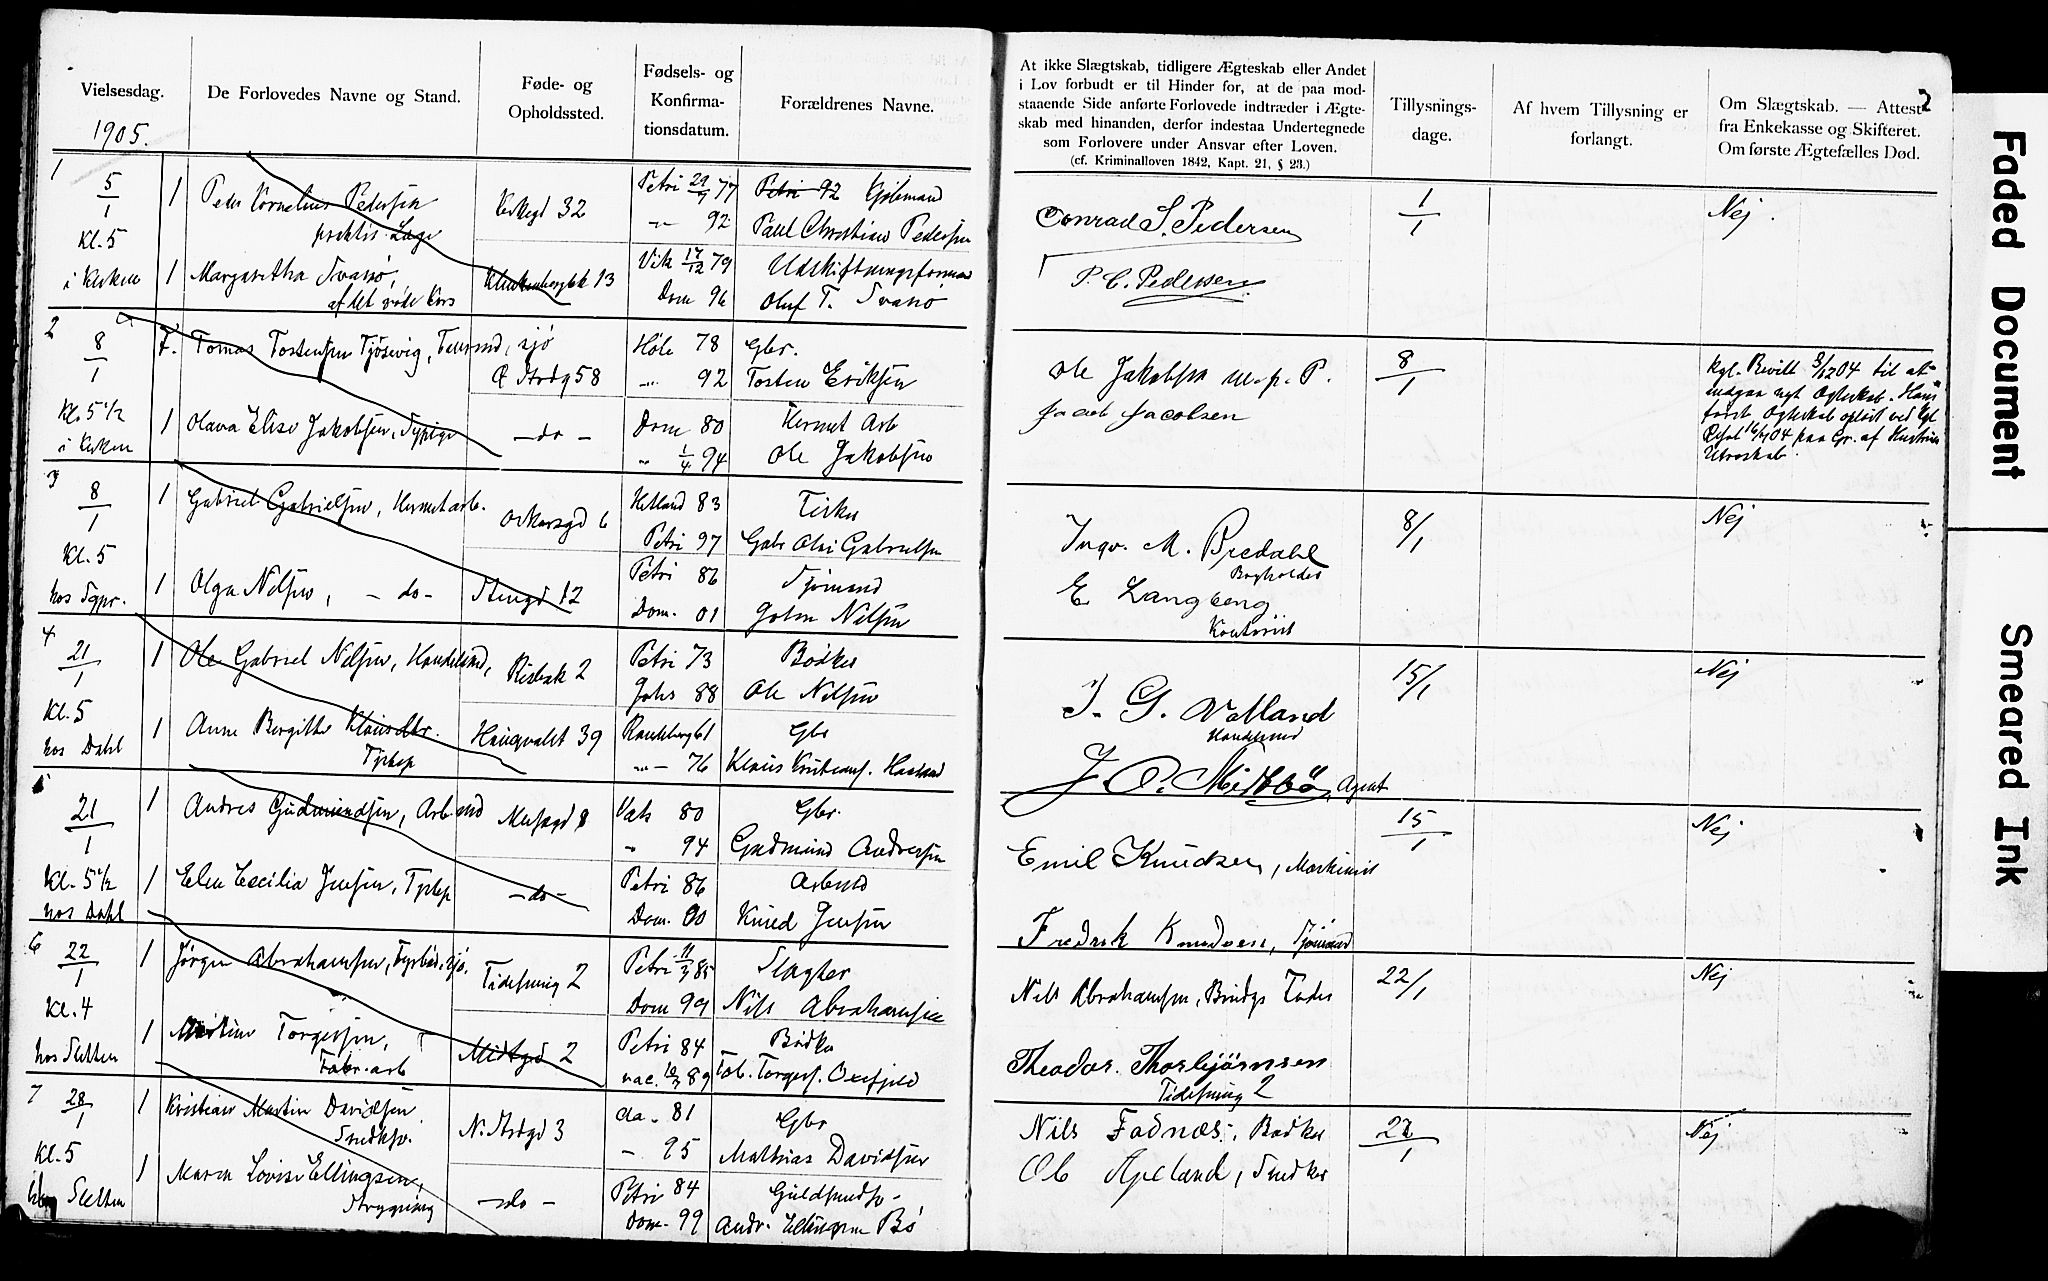 Vielsesdag.
1905.
De Forlovedes Navne og Stand.
Føde- og
Opholdssted.
Fødsels- og
Konfirma-
tionsdatum.
Forældrenes Navne.
At ikke Slægtskab, tidligere Ægteskab eller Andet
i Lov forbudt er til Hinder for, at de paa mod-
staaende Side anførte Forlovede indtræder i Ægte-
skab med hinanden, derfor indestaa Undertegnede
som Forlovere under Ansvar efter Loven.
(cf. Kriminalloven 1842, Kapt. 21, § 23.)
Tillysnings-
dage.
Af hvem Tillysning er
forlangt.
Om Slægtskab. — Attest
fra Enkekasse og Skifteret.
Om første Ægtefælles Død.
2
1
5/1
Kl. 5
i Kirken
1 Peder Kornelius Pedersen
praktis. Læge
Kirkegd 32
Petri 29/9 77
-"- 92
Petri 92 Kjøbmand
Paul Christian Pedersen
1 Margaretha Svanø,
af det røde Kors
Klinkenbergbk 13
Vik 17/12 79
Dom 96
Udskiftningsformand
Oluf T. Svanø
Conrad S. Pedersen
P. C. Pedersen
1/1
Nej.
2
8/1
Kl. 5 1/2
i Kirken
F. Tomas Tostensen Tjösevig, sjö
Ø Strdg 58
Höle 78
-"- 92
Gbr.
Tosten Eriksen
1 Olava Elise Jakobsen,
- do -
Dom 80
" 1/4 94
Hermet Arb
Ole Jakobsen
Ole Jakobsen m. p. P.
Jacob Jacobsen
8/1
Kgl. Bevill 3/12 04 til at
indgaa nyt Ægteskab. Hans
først Ægteskab opløst ved Kgl
04 paa Gr. af Hustrus
Utroskab.
3
8/1
Kl. 5
hos Sgpr.
1 Gabriel Gabrielsen, Hermetarb.
Oskarsgd 6
Hetland 83
Petri 97
Fisker
Gabr Olai Gabrielsen
1 Olga Nilsen, - do -
Stengd 12
Petri 86
Dom. 01
Sjömand
John Nilsen
Ingv. M. Bredahl
Bogholder
E. Langberg
Kontorist
8/1
Nej
4
21/1
Kl. 5
hos Dahl
1 Ole Gabriel Nilsen, Handelsmd,
Risbak 2
Petri 73
Johs 88
Bödker
Ole Nilsen
1 Anne Bergitte Klausdtr.
Tjhep
Haugvaldst 39
Randeberg 61
-"- 76
Gbr
Klaus Kristians. Harland
J. G. Válland
Handelsmd
J. O. Midbö, Agent
15/1
Nej
5
21/1
Kl. 5 1/2
hos Dahl
1 Andres Gudmundsen, Arb.md
Musægd 8
Vats 80
" 94
Gbr.
Gudmund Andressen
1 Elen Cecilia Jensen, Tjhep
- do -
Petri 86
Dom. 00
Arbmd
Knud Jensen
Emil Knudsen, Maskinist
Fredrik Knudsen, Sjömand
15/1
Nej
6
22/1
Kl. 4
hos Sletten
1 Jörgen Abrahamsen, Fyrböd, sjö.
Tidesmug 2
Petri 11/3 85
Dom 99
Slagter
Nils Abrahamsen
1 Martine Torgersen,
Fabr. arb
Midtgd 2
Petri 84
vac. 89
Bödker
Tob. Torgers. Oxefjeld
Nils Abrahamsen, Brudgs Fader
Theodor. Thorbjörnsen
Tidesmug 2
22/1
Nej
7
28/1
Kl. 5
Sletten
1 Kristian Martin Davidsen
Snedksv.
N. Strdgd 3
do. 81
- 95
Gbr
Mathias Davidsen
1 Maren Lovise Ellingsen,
Strygning
- do -
Petri 84
Dom. 99
Guldsmdsv-
Andr. Ellingsen Bö
Nils Fadnæs, Bødker
Ole Apeland, Snedker
22/1
Nej
Faded Document
Smeared Ink